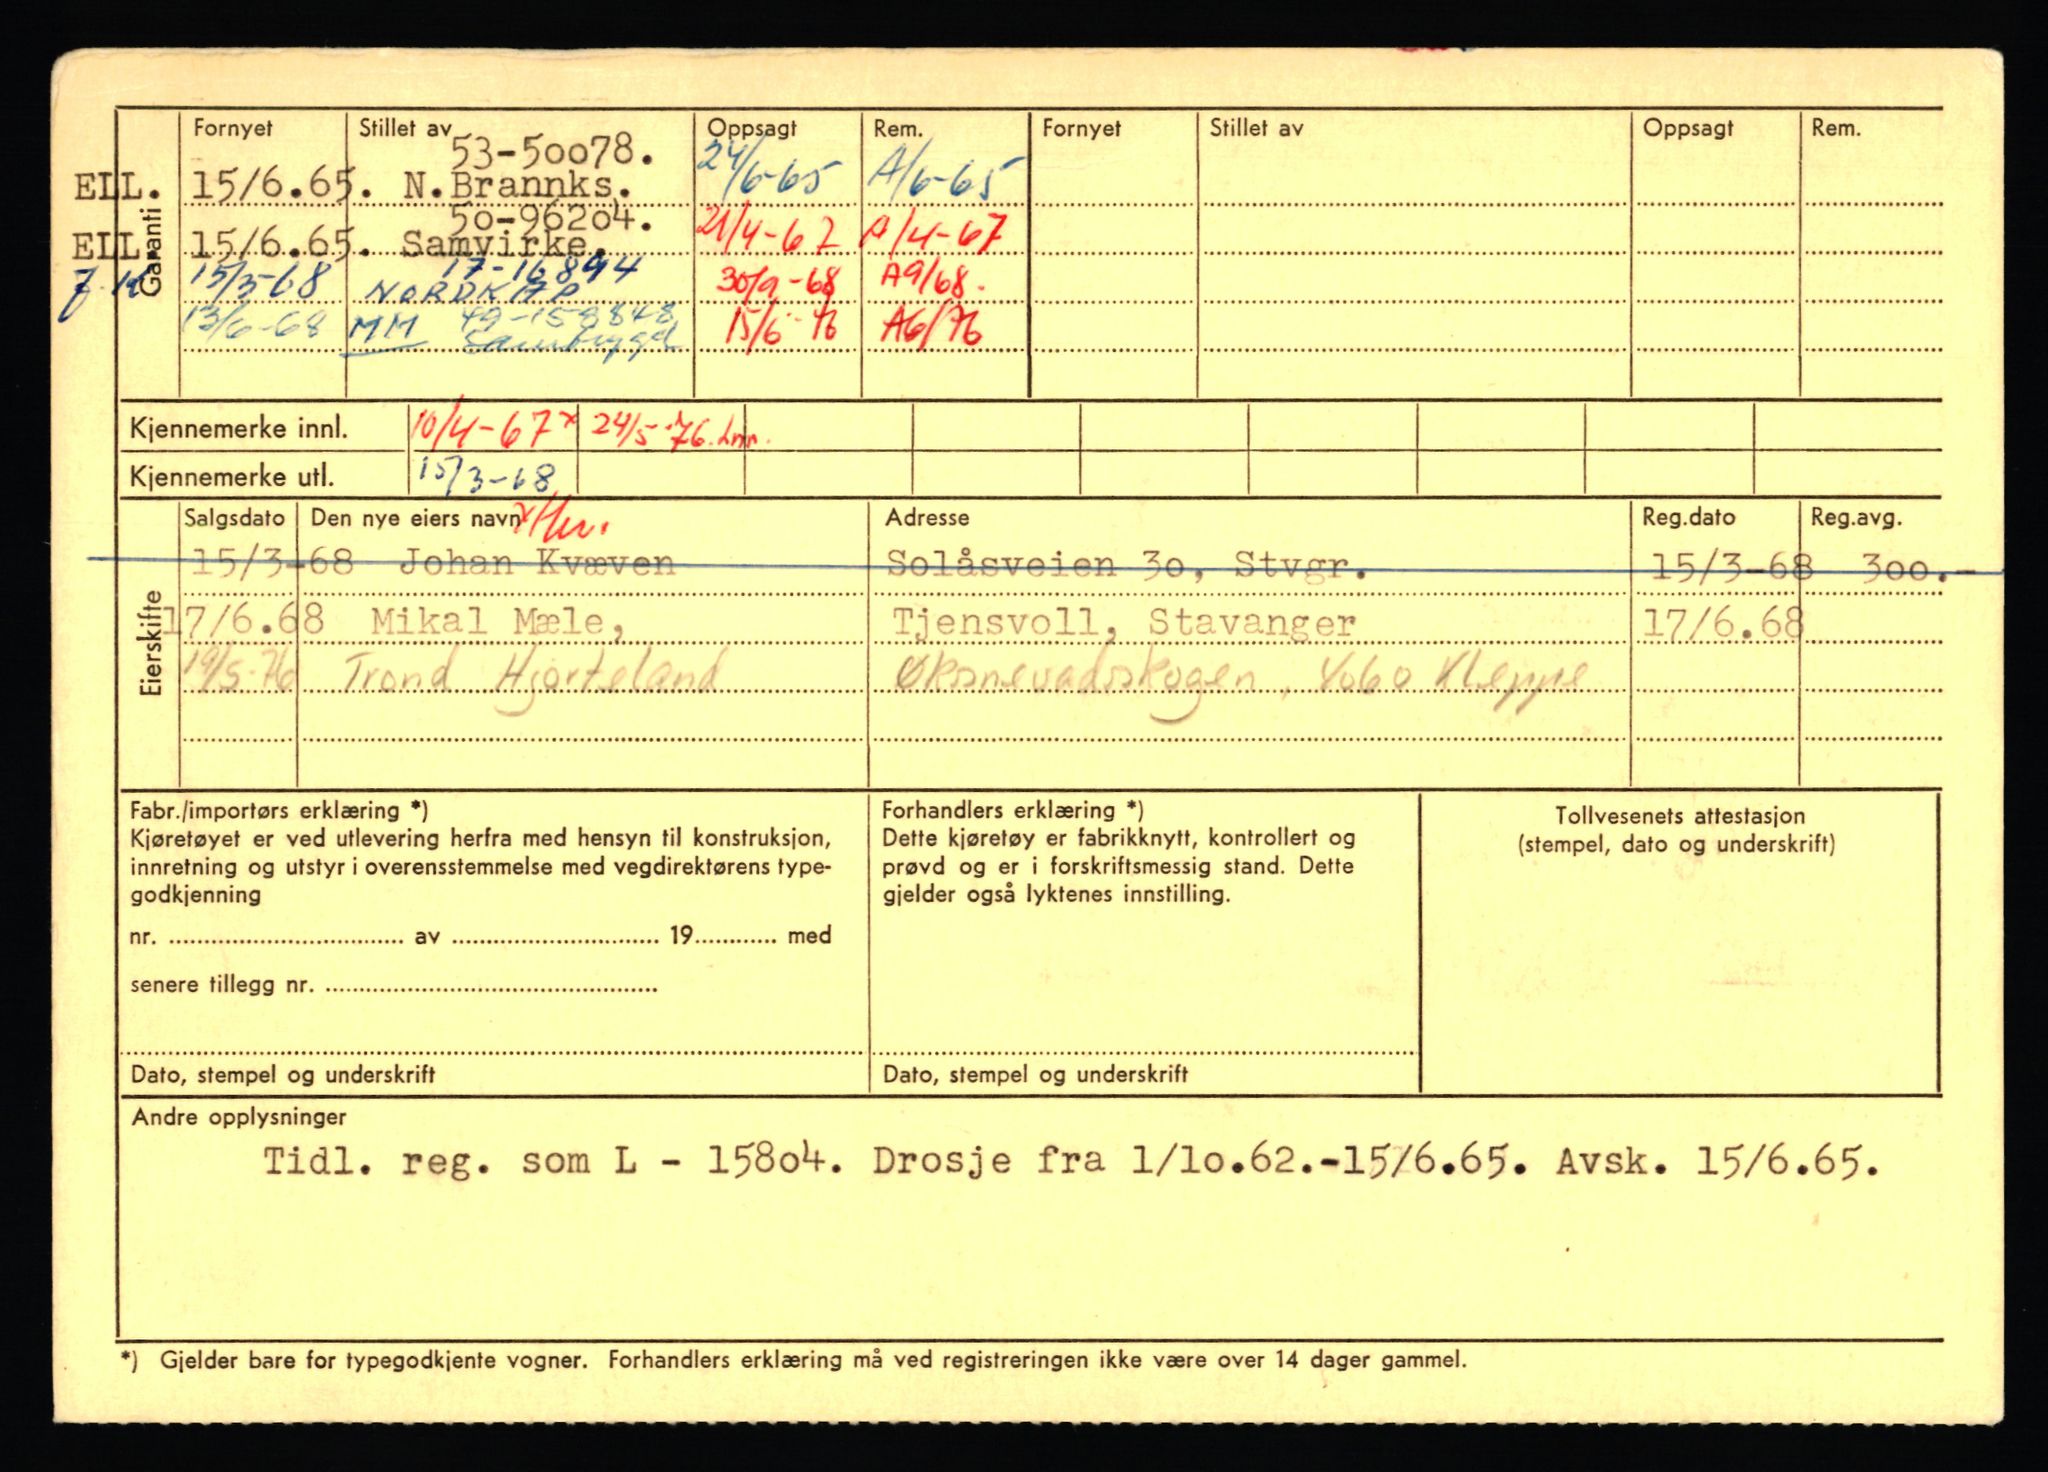 Fornyet Stillet av Oppsagt Rem. Fornyet Stillet av Oppsagt Rem.
Garanti
53-50078. 24/6-65 A/6-65
ELL. 15/6.65. N.Brannks.
50-96204. 21/4-67 A/4-67
ELL 15/6.65. Samvirke.
15/3-68 17-16894 30/9-68 A9/68.
NORDKAP
13/6-68 MM 49-158848 15/6-76 A6/76
Samtrygd
Kjennemerke innl. 10/4-67x 24/5-76.
Kjennemerke utl. 15/3-68
Eierskifte
Salgsdato Den nye eiers navn Adresse Reg.dato Reg.avg.
15/3-68 Johan Kvæven Solåsveien 3o, Stvgr. 15/3-68 300.-
17/6.68 Mikal Mæle, Tjensvoll, Stavanger 17/6.68
19/5-76 Trond Hjorteland Øksnevadskogen, 4060 Kleppe
Fabr./importørs erklæring *)
Kjøretøyet er ved utlevering herfra med hensyn til konstruksjon,
innretning og utstyr i overensstemmelse med vegdirektørens type-
godkjenning
nr. .................... av .................... 19............ med
senere tillegg nr. ....................
Dato, stempel og underskrift
Forhandlers erklæring *)
Dette kjøretøy er fabrikknytt, kontrollert og
prøvd og er i forskriftsmessig stand. Dette
gjelder også lyktenes innstilling.
Dato, stempel og underskrift
Tollvesenets attestasjon
(stempel, dato og underskrift)
Andre opplysninger
Tidl. reg. som L - 15804. Drosje fra 1/10.62.-15/6.65. Avsk. 15/6.65.
*) Gjelder bare for typegodkjente vogner. Forhandlers erklæring må ved registreringen ikke være over 14 dager gammel.